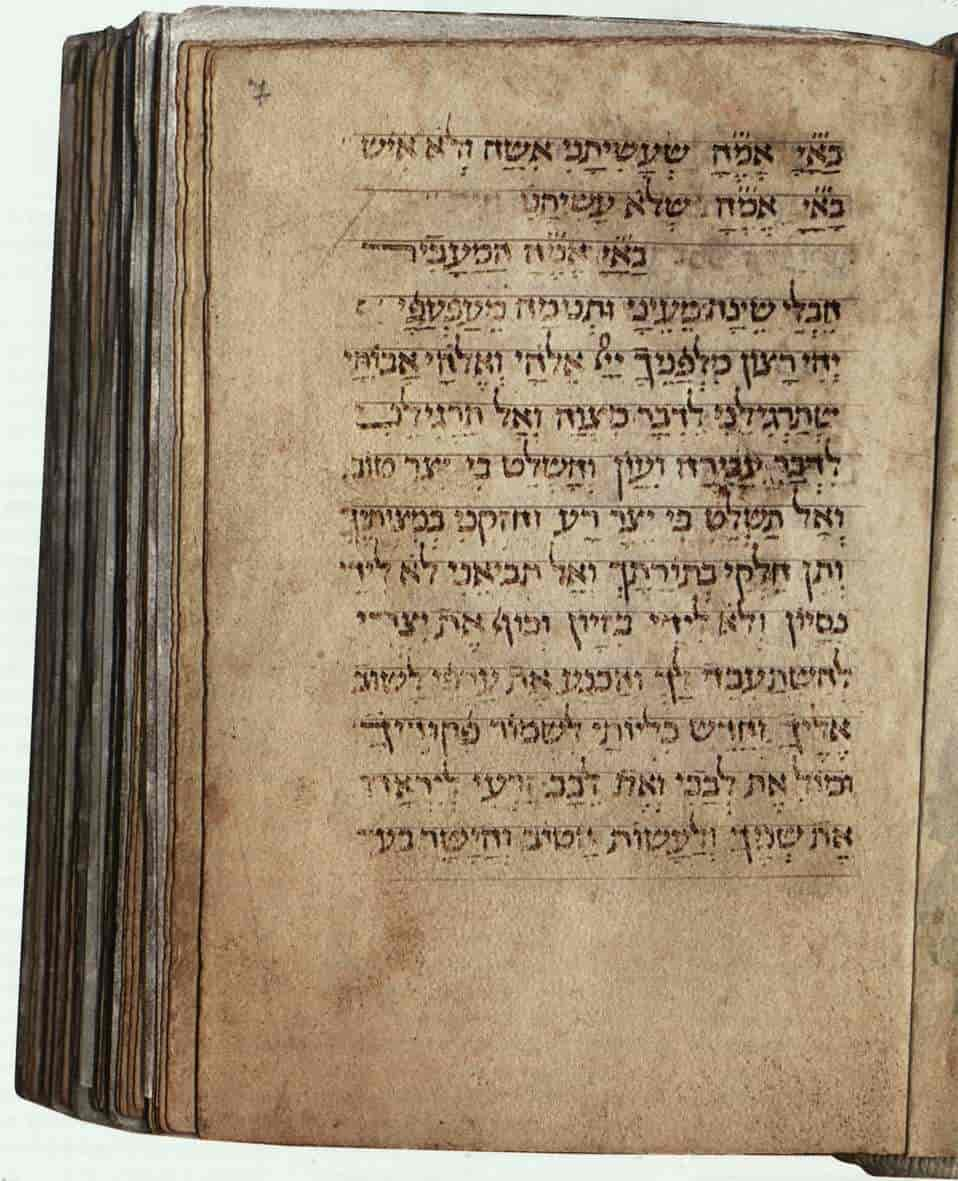 7
בא״י אמ״ה שעשיתני אשה ולא איש
בא״י אמ״ה שלא עשיתני
בא״י אמ״ה המעביר
חבלי שינה מעיני ותנומה מעפעפי
יהי רצון מלפניך ייי אלהי ואלהי אבותי
שתרגילני לדבר מצוה ואל תרגילני
לדבר עבירה ועון ותשלט בי יצר טוב
ואל תשלט בי יצר רע וחזקני במצותיך
ותן חלקי בתורתך ואל תביאני לא לידי
נסיון ולא לידי בזיון וכוף את יצרי
להשתעבד לך והכנע את ערפי לשוב
אליך וחדש כליותי לשמור פקודיך
ומול את לבבי ואת לבב זרעי ליראה
את שמך ולעשות הטוב והישר בעי